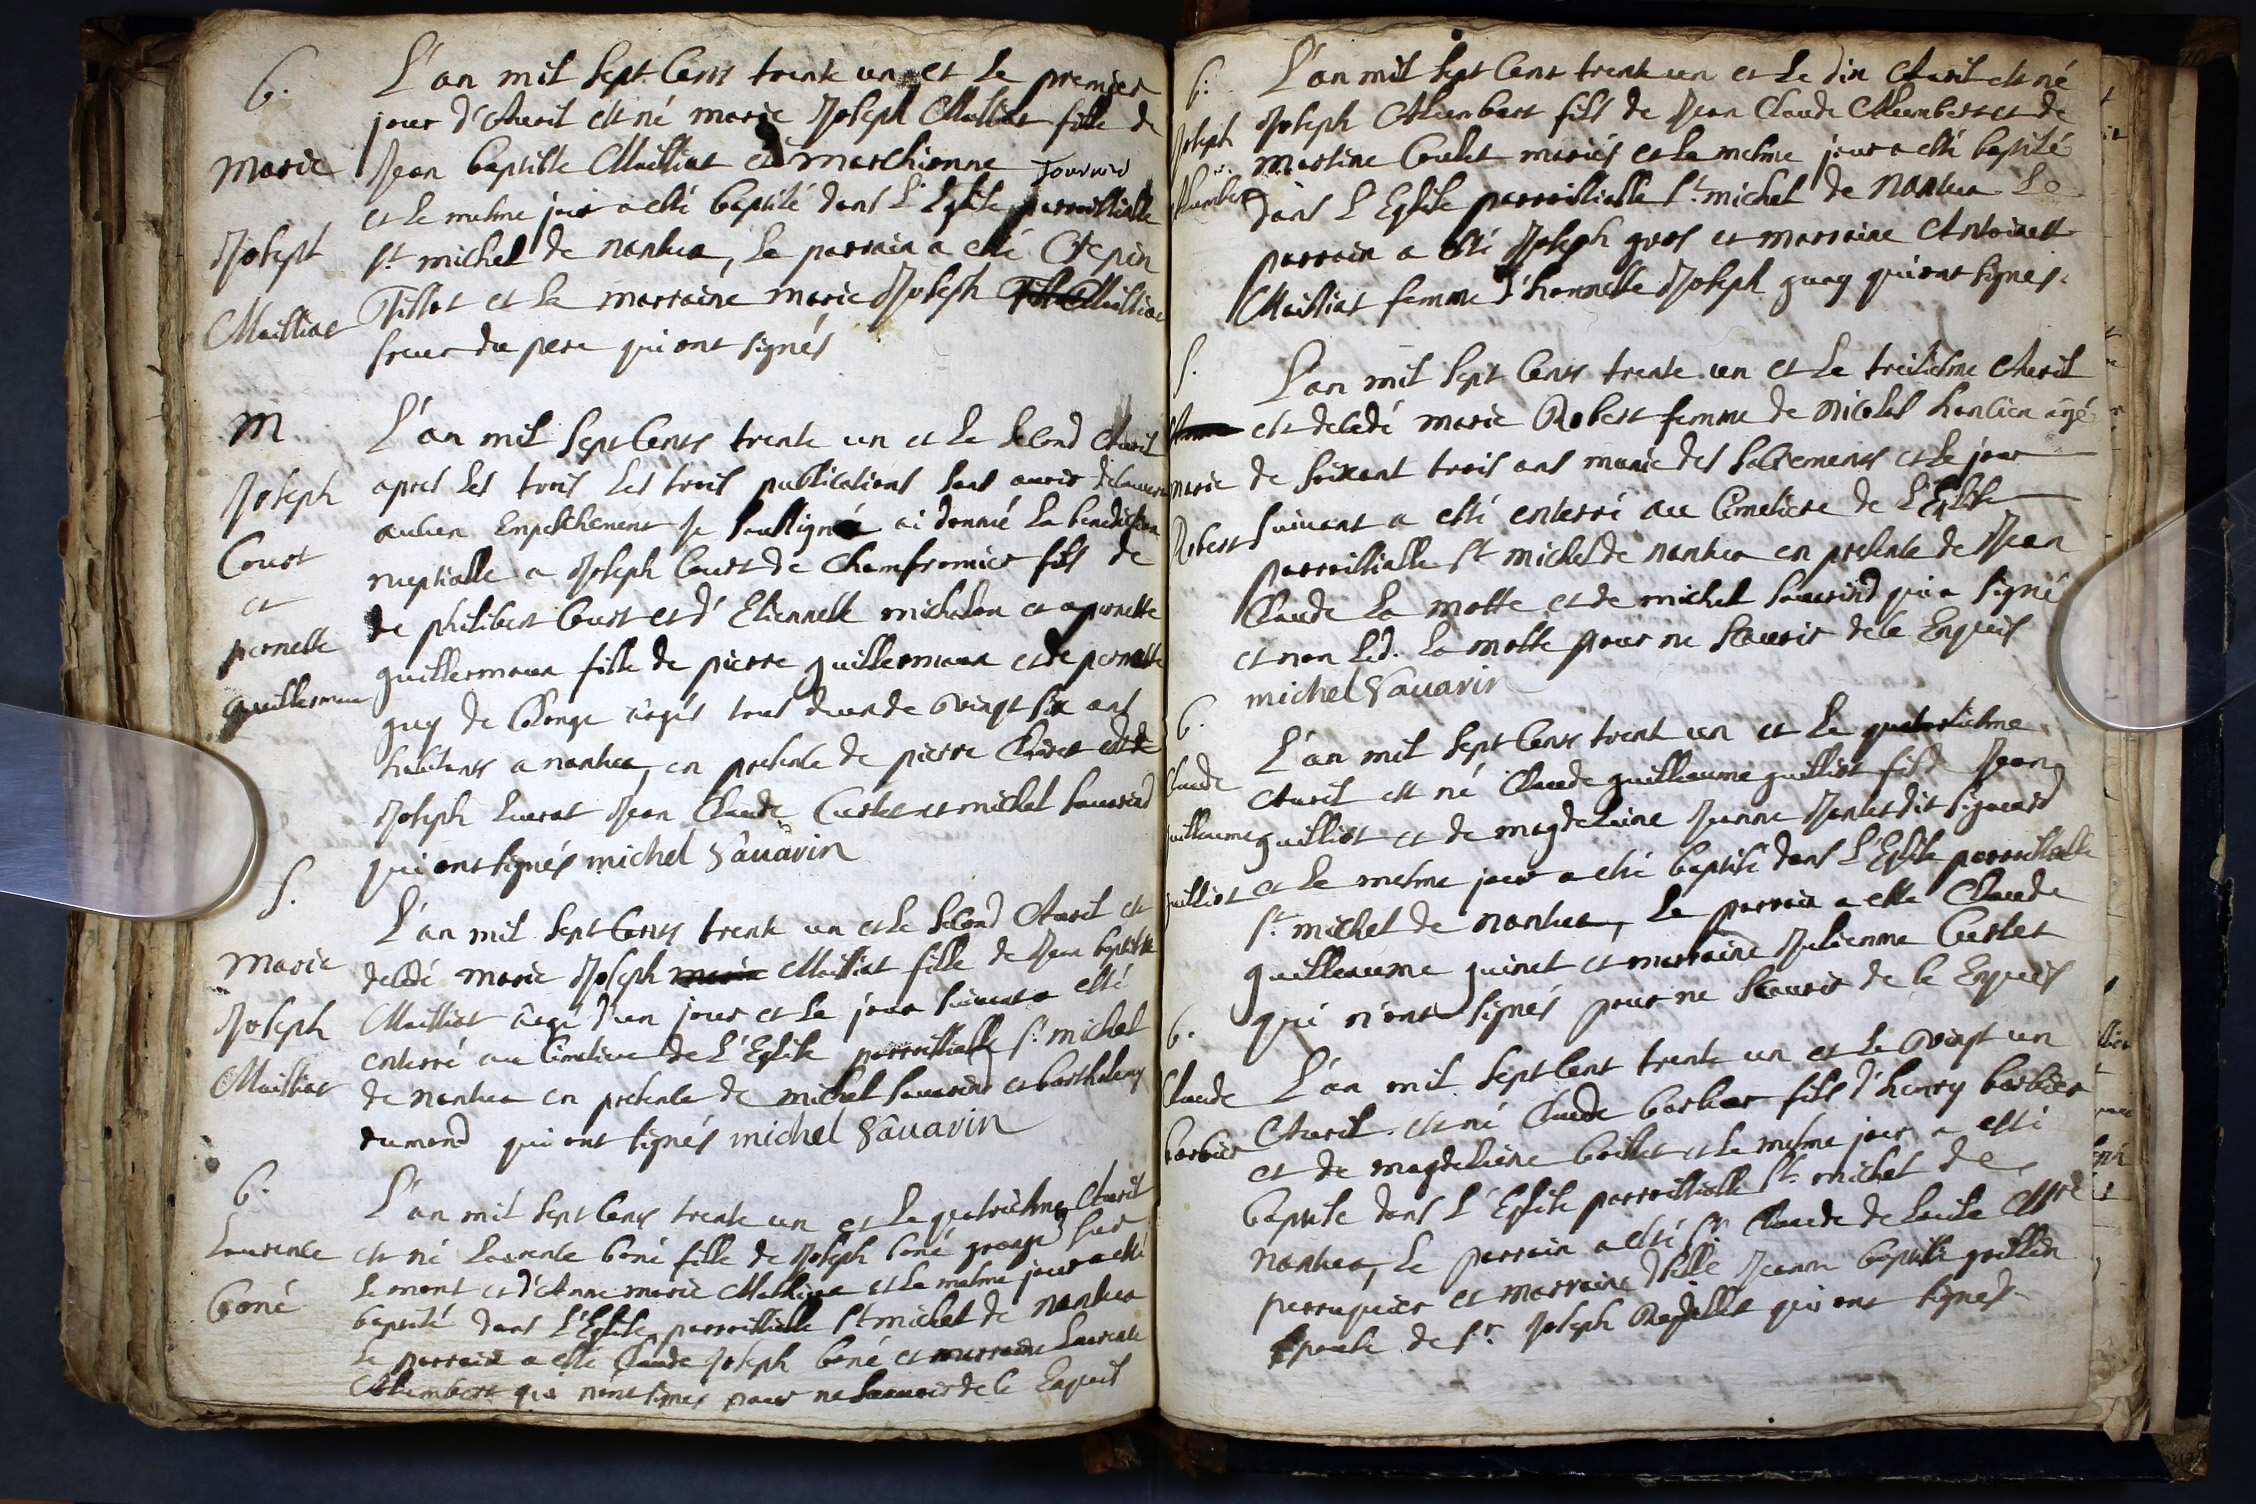 B.
Marie
Joseph
Mailliat
L'an mil sept cents trente un et le premier
jour d'Avril est né marie Joseph Mailliat fille de
Jean baptiste Mailliat et marchionne Tournier
et le mesme jour a esté baptisé dans l'Eglise parroissialle
st michel de nantua, le parrain a esté
et la marraine marie Joseph Mailliat
soeur du pere qui ont signés
M
Joseph
Court
et
pernette
guillermau
L'an mil sept cents trente un et le second Avril
apres les trois les trois publications sans avoir découvert
aucun Empeschement je soussigné ai donné la benediction
nuptialle a Joseph Court de Chamfromier fils de
de philibert Court et d'Etiennette michalon et a pernette
guillermaux fille de pierre guillermaux et de pernette
guy de âgés tous deux de vingt six ans
habitants a nantua, en presence de pierre et de
Joseph Jean Claude Curlet et michel Sauarind
qui ont signés michel Sâuârin
S.
Marie
Joseph
Mailliat
L'an mil sept cents trente un et le second Avril est
decédé marie Joseph marie Mailliat fille de Jean baptiste
Mailliat âgé d'un jour et le jour suivant a esté
enterré au Cimetiere de l'Eglise parroissialle st michel
de nantua en presence de michel Sauarind et barthelemy
dumond qui ont signés michel Sâuarin
B.
Laurence
Goné
L'an mil sept cents trente un et le quatriesme Avril
est né Laurence Goné fille de Joseph Goné granger sur
le mont et d'Anne marie et le mesme jour a esté
baptisé dans l'Eglise parroissialle st michel de nantua
le parrain a esté Claude Joseph Goné et marraine Laurence
Alumbert qui n'ont signés pour ne sçauoir de ce Enquis
B.
Joseph
Alumbert
L'an mil sept cens trente un et le dix Avril est né
Joseph Alumbert fils de Jean Claude Alumbert et de
martine mariés et le mesme jour a esté baptisé
dans l'Eglise parroissialle st michel de Nantua le
parrain a esté Joseph gros et marraine Antoinette
Mailliat femme d'honneste Joseph guy qui ont signés.
S.
Marie
Robert
L'an mil sept cents trente un et le treisiesme Avril
est decédé marie Robert femme de nicolas âgé
de soixant trois ans munie des sacrements et le jour
suivant a esté enterré au Cimetiere de l'Eglise
parroissialle st michel de nantua en presence de Jean
Claude La motte et de michel Sauarind qui a signé
et non led. La motte pour ne sçauoir de ce Enquis
michel Sâuarin
B.
Claude
guilleaume
guilliot
L'an mil sept cens trent un et le quatorsiesme
Avril est né Claude guilleaume guilliot fils Jean
guilliot et de magdeleine Jeanne dit
et le mesme jour a esté baptisé dans l'Eglise parroissialle
st michel de nantua, le parrain a esté Claude
guilleaume guinet et marraine Julienne Curlet
qui n'ont signés pour ne sçauoir de ce Enquis
B.
Claude
barbier
L'an mil sept cent trente un et le vingt un
Avril est né Claude barbier fils d'henry barbier
et de magdeleine et le mesme jour a esté
baptisé dans l'Eglise parroissialle st michel de
nantua, le parrain a esté sr Claude de Mtre
perruquier et marraine dlle Jeanne baptiste
Epouse de sr Joseph qui ont signés